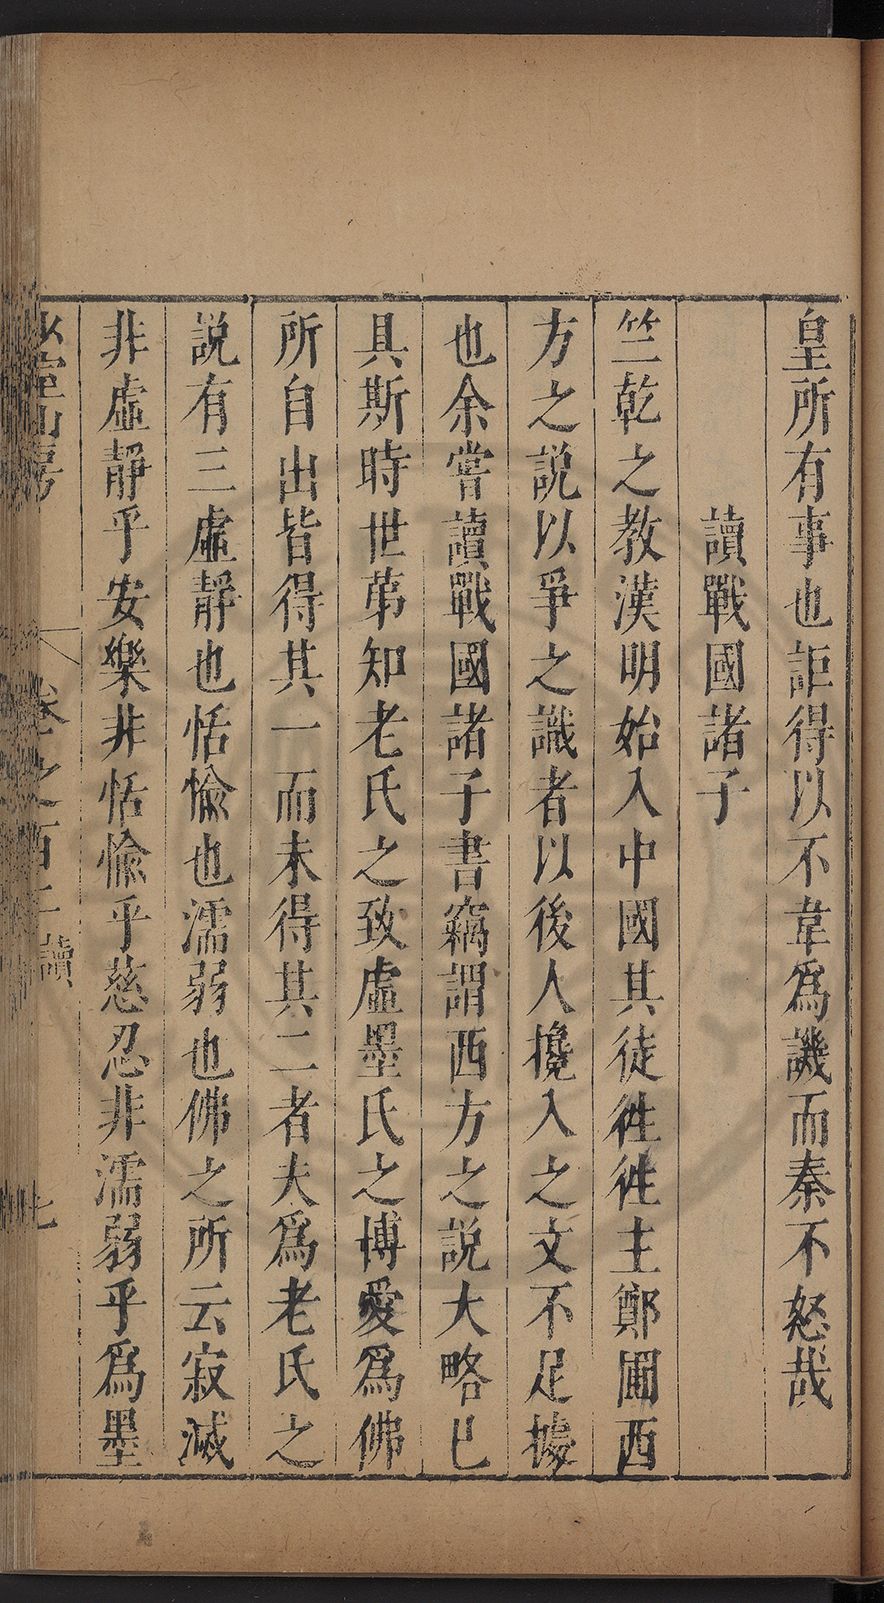 皇所有事也詎得以不韋爲譏而秦不怒哉
讀戰國諸子
竺乾之教漢明始入中國其徒徃徃主鄭圃西
方之說以爭之識者以後人攙入之文不足據
也余嘗讀戰國諸子書竊謂西方之說大略已
具斯時世第知老氏之致虛墨氏之博愛爲佛
所自出皆得其一而未得其二者夫爲老氏之
說有三虛靜也恬愉也濡弱也佛之所云寂滅
非虛靜乎安樂非恬愉乎慈忍非濡弱乎爲墨
山房
卷之百
讀
七